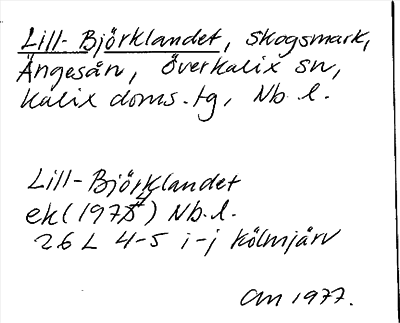 Lill-Björklandet, skogsmark,
Ängesån, Överkalix sn,
Kalix doms.tg, Nb.l.
Lill-Björklandet
ek (1974) Nb.l.
26 L 4-5 i-j Kölmjärv
am 1977.